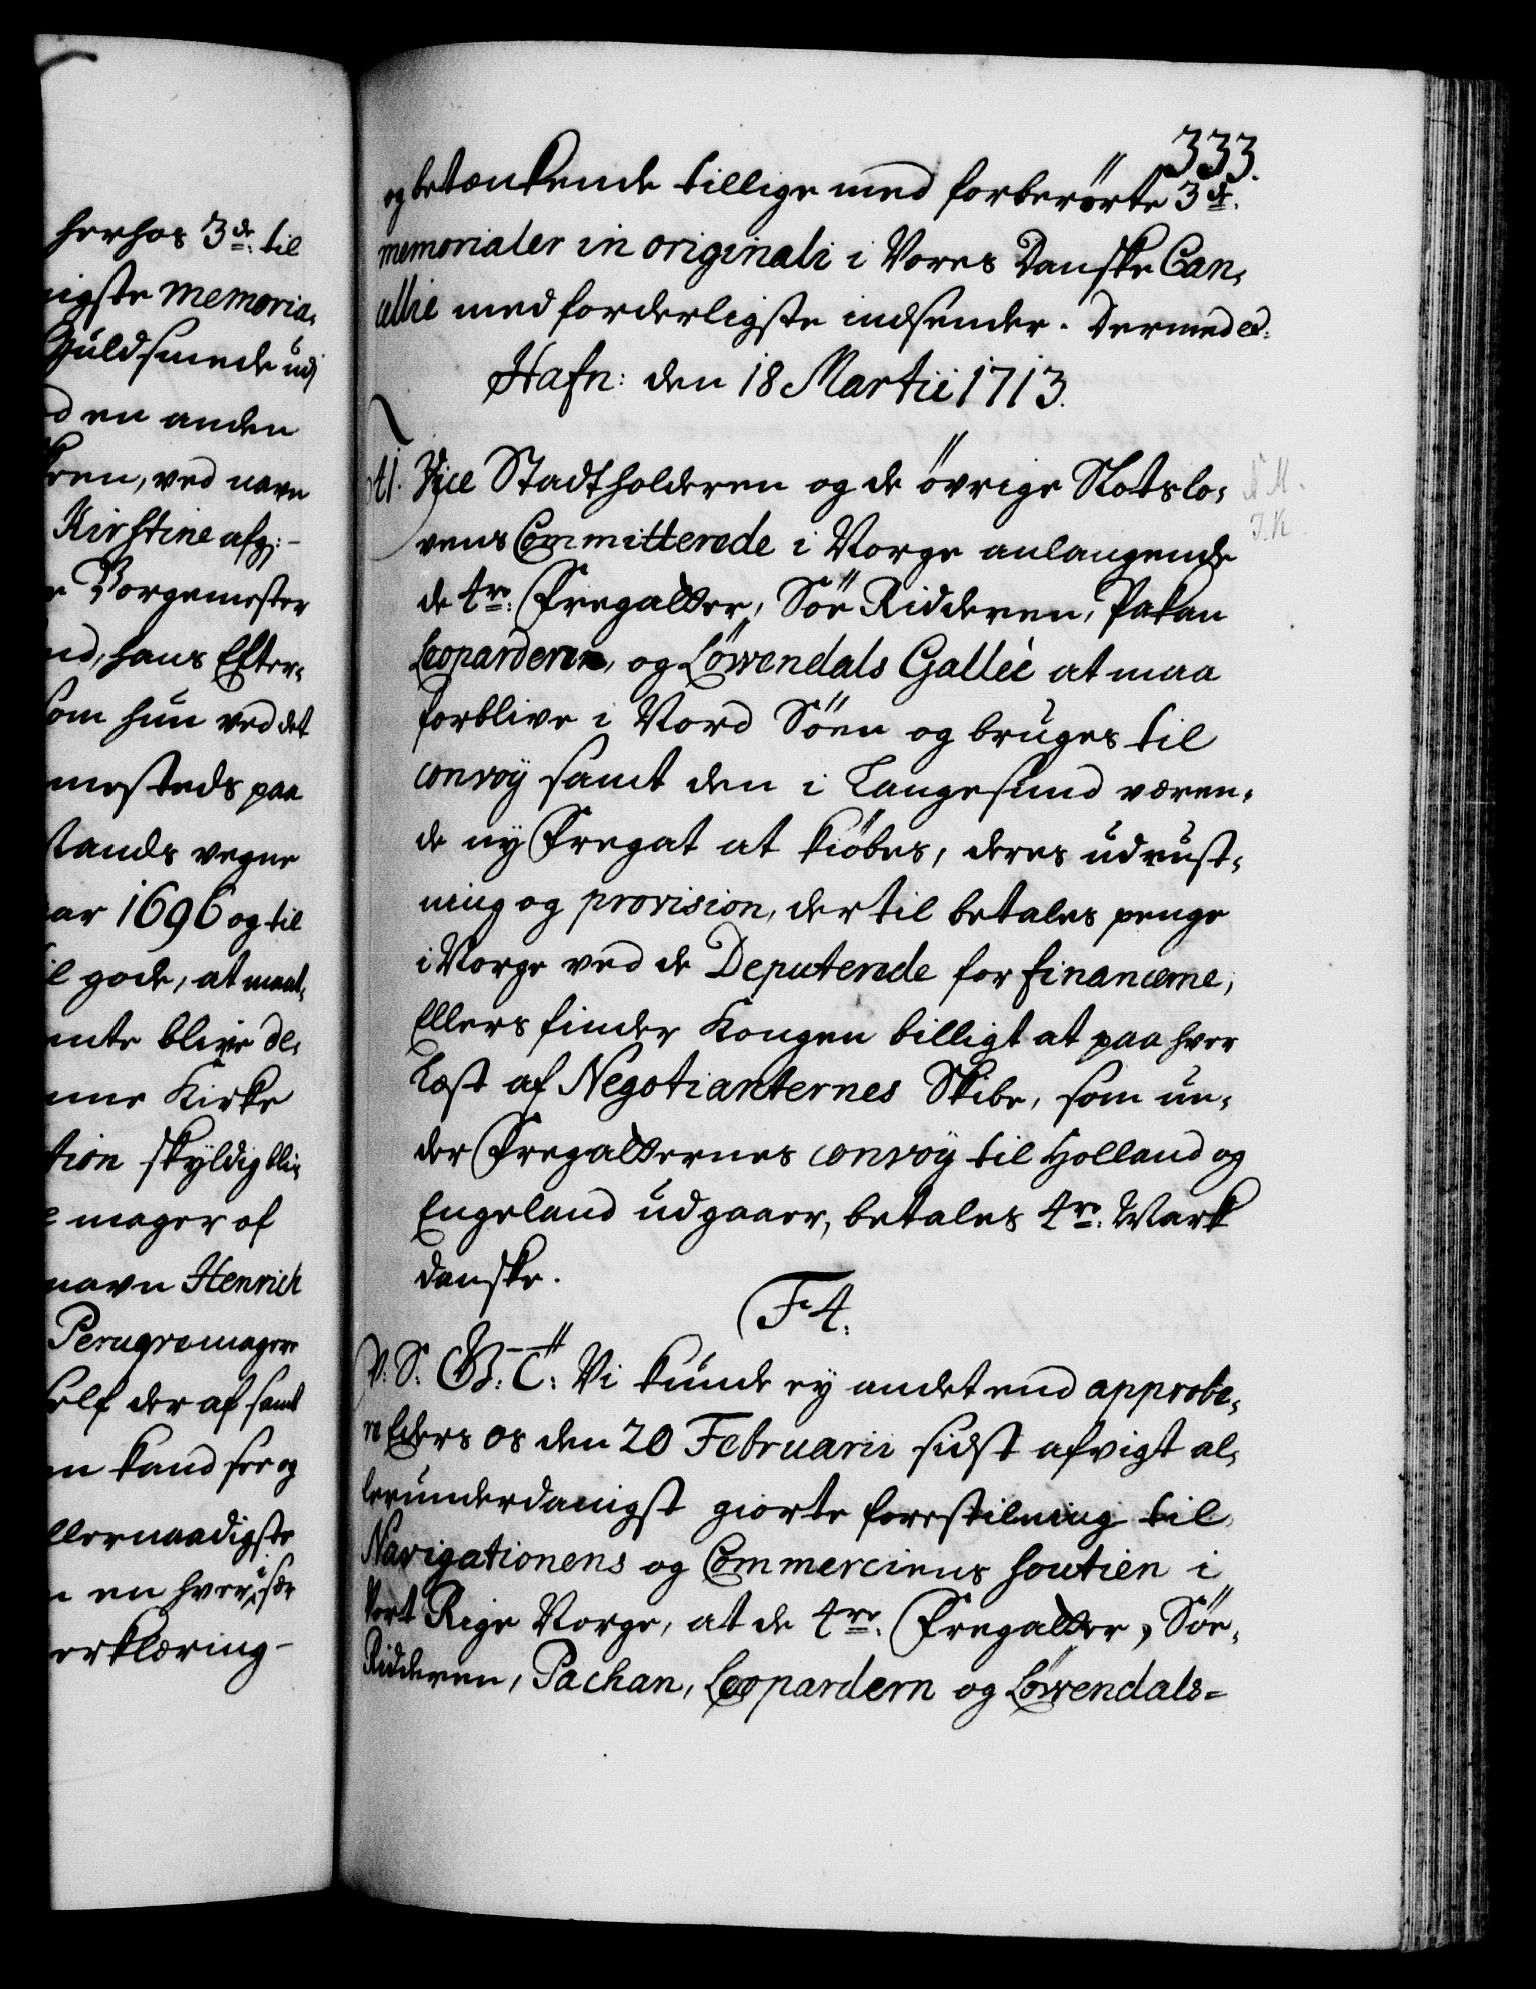 herhos 3de: til
nigste memoria,
Guldsmede udj
d en anden
ken, ved navn
Kirstine afg: -
e Borgemester
nd, hans Efter,
som hun ved det
mesteds paa
stands vegne
aar 1696 og til
il gode, at maat,
mte blive de,
nne Kirke
tion skyldig bli,
e mager af
navn Henrich
Peruqvemagere
self der af samt
en kand see og
llernaadigste
n en hver i sær
erklæring -
333.
og betænkende tillige med forberörte 3de.
memorialer in originali i Vores Danske Can,
cellie med forderligste indsender. Dermed etc.
Hafn: den 18 Martii 1713.
Til Vice Stadtholderen og de övrige Slotslo,
vens Committerede i Norge anlangende
de 4re: Fregatter, Söe Ridderen, Pakan
Leoparderen, og Löwendals Galleè at maa
forblive i Nord Söen og bruges til
convoy samt den i Langesund væren,
de ny Fregat at kiöbes, deres udrust,
ning og provision, der til betales penge
i Norge ved de Deputerede for financerne,
Ellers finder Kongen billigt at paa hver
Læst af Negotianternes Skibe, som un,
der Fregatternes convoy til Holland og
Engeland udgaaer, betales 4re. Mark
danske.
F 4.
V. S. G. T: Vi kunde ey andet end approbe,
re Eders os den 20 Februarii sidst afvigt al,
lerunderdanigst giorte forestilning til
Navigationens og Commerciens soutien i
Vort Rige Norge, at de 4re. Fregatter, Söe,
Ridderen, Pachan, Leopardern og Löwendals=
N M.
J. K